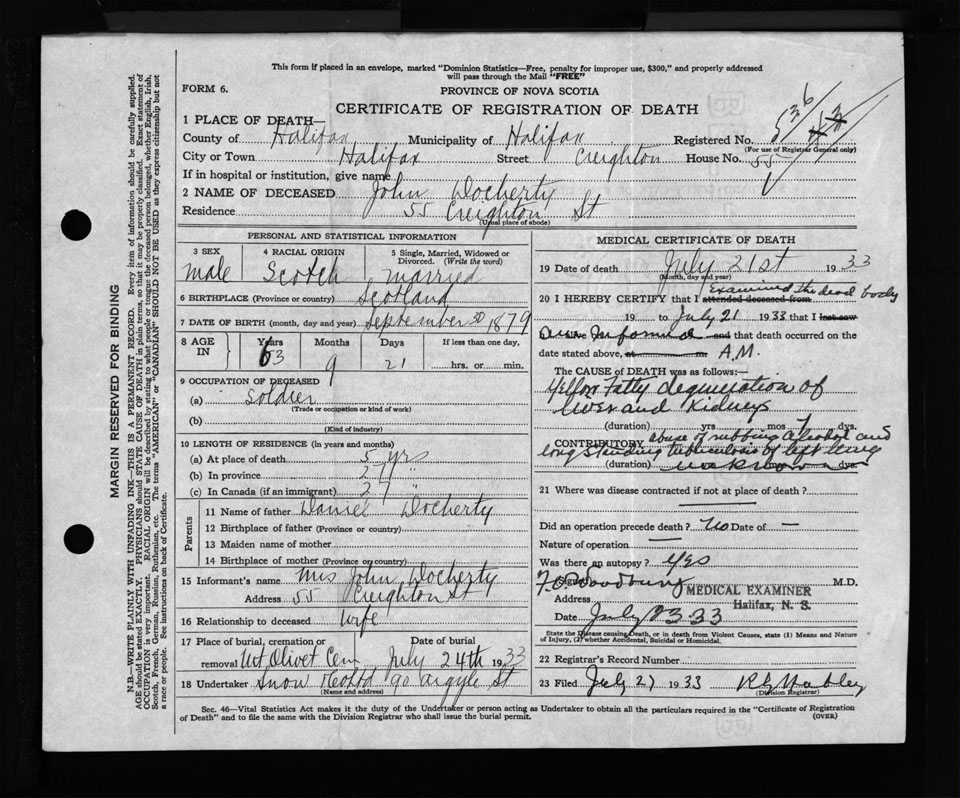 This form if placed in an envelope, marked "Dominion Statistics—Free, penalty for improper use, $300," and properly addressed
will pass through the Mail "FREE"
FORM 6.
PROVINCE OF NOVA SCOTIA
CERTIFICATE OF REGISTRATION OF DEATH
536
1 PLACE OF DEATH—
County of Halifax Municipality of Halifax Registered No.
(For use of Registrar General only)
City or Town Halifax Street Creighton House No. 55
If in hospital or institution, give name
2 NAME OF DECEASED John Docherty
Residence 55 Creighton St
(Usual place of abode)
PERSONAL AND STATISTICAL INFORMATION
3 SEX 4 RACIAL ORIGIN 5 Single, Married, Widowed or
Divorced. (Write the word)
Male Scotch Married
6 BIRTHPLACE (Province or country) Scotland
7 DATE OF BIRTH (month, day and year) September 30 1879
8 AGE IN Years Months Days If less than one day,
63 9 21 hrs. or min.
9 OCCUPATION OF DECEASED
(a) Soldier
(Trade or occupation or kind of work)
(b)
(Kind of industry)
10 LENGTH OF RESIDENCE (in years and months)
(a) At place of death 5 yrs
(b) In province 27 "
(c) In Canada (if an immigrant) 27 "
Parents
11 Name of father Daniel Docherty
12 Birthplace of father (Province or country)
13 Maiden name of mother
14 Birthplace of mother (Province or country)
15 Informant's name Mrs John Docherty
Address 55 Creighton St
16 Relationship to deceased Wife
17 Place of burial, cremation or Date of burial
removal Mt. Olivet Cem July 24th 1933
18 Undertaker Snow & Co Ltd 90 Argyle St
(Name and address)
MEDICAL CERTIFICATE OF DEATH
19 Date of death July 21st 1933
(Month, day and year)
Examined the dead body
20 I HEREBY CERTIFY that I attended deceased from
19 to July 21 1933 that I last saw
Informed and that death occurred on the
date stated above, at m A.M.
The CAUSE of DEATH was as follows:—
Yellow Fatty degeneration of
liver and kidneys
(duration) yrs mos dys.
CONTRIBUTORY abuse of rubbing alcohol and
long standing tuberculosis of left lung
(duration) unknown dys.
21 Where was disease contracted if not at place of death?
Did an operation precede death? No Date of —
Nature of operation —
Was there an autopsy? Yes
Signed Woodbury M.D.
MEDICAL EXAMINER
Address
Halifax, N. S.
Date July 33
State the Disease causing Death, or in death from Violent Causes, state (1) Means and Nature
of Injury, (2) whether Accidental, Suicidal or Homicidal.
22 Registrar's Record Number
23 Filed July 27 1933
(Division Registrar)
Sec. 46—Vital Statistics Act makes it the duty of the Undertaker or person acting as Undertaker to obtain all the particulars required in the "Certificate of Registration
of Death" and to file the same with the Division Registrar who shall issue the burial permit.
(OVER)
MARGIN RESERVED FOR BINDING
N.B.—WRITE PLAINLY WITH UNFADING INK—THIS IS A PERMANENT RECORD. Every item of information should be carefully supplied.
AGE should be stated EXACTLY. PHYSICIANS should STATE CAUSE OF DEATH in plain terms, so that it may be properly classified. Exact statement of
OCCUPATION is very important. RACIAL ORIGIN will be described by stating to what people or tongue the deceased person belonged, whether English, Irish,
Scotch, French, German, Russian, Ruthenian, etc. The terms "AMERICAN" or "CANADIAN" SHOULD NOT BE USED as they express citizenship but not
a race or people. See instructions on back of Certificate.